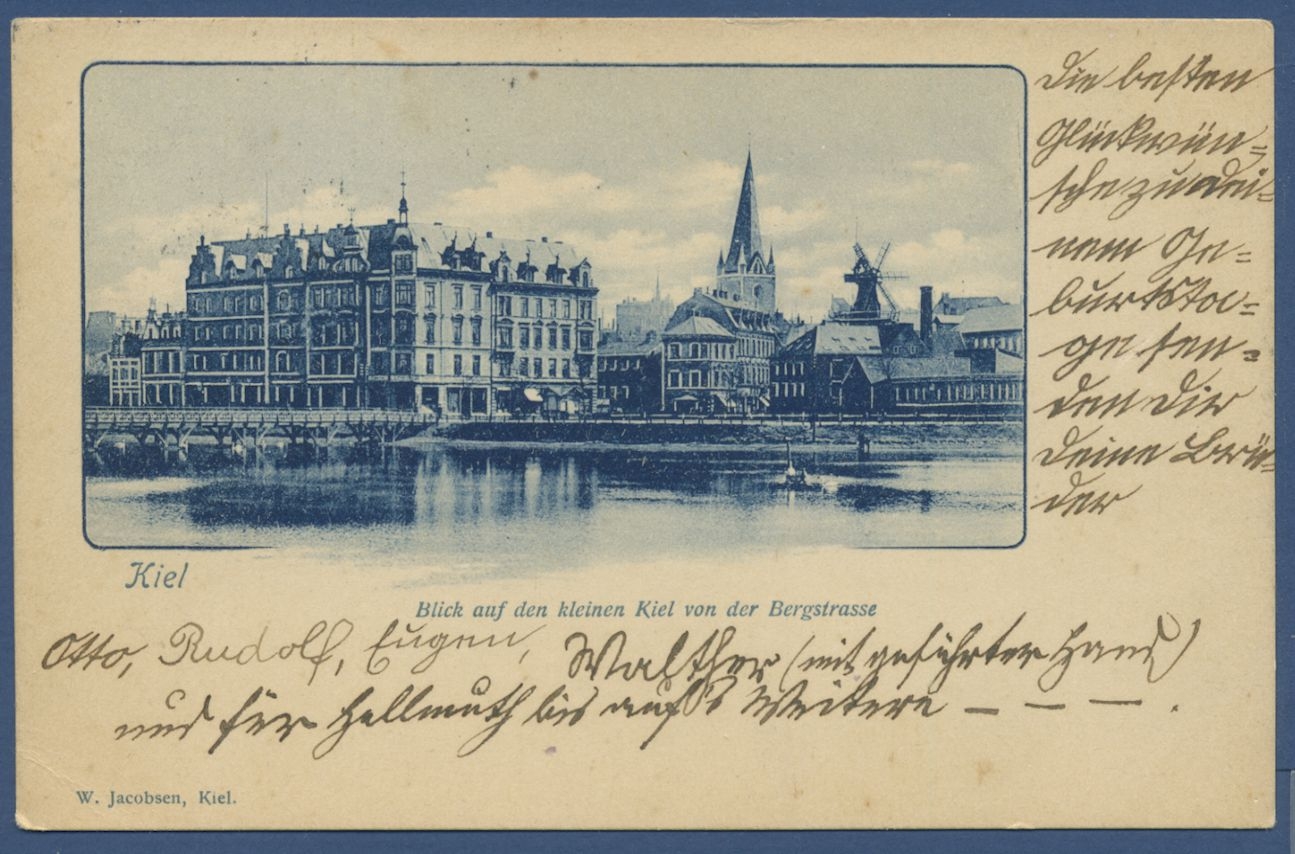 Die besten
Glückwün=
sche zu dei=
nem Ge=
burtsta=
ge sen=
den Dir
deine Brü=
der
Kiel
Blick auf den kleinen Kiel von der Bergstrasse
Otto, Rudolf, Eugen, Walther (mit geführter Hand)
und für Hellmuth bis auf's Weitere — — — .
W. Jacobsen, Kiel.